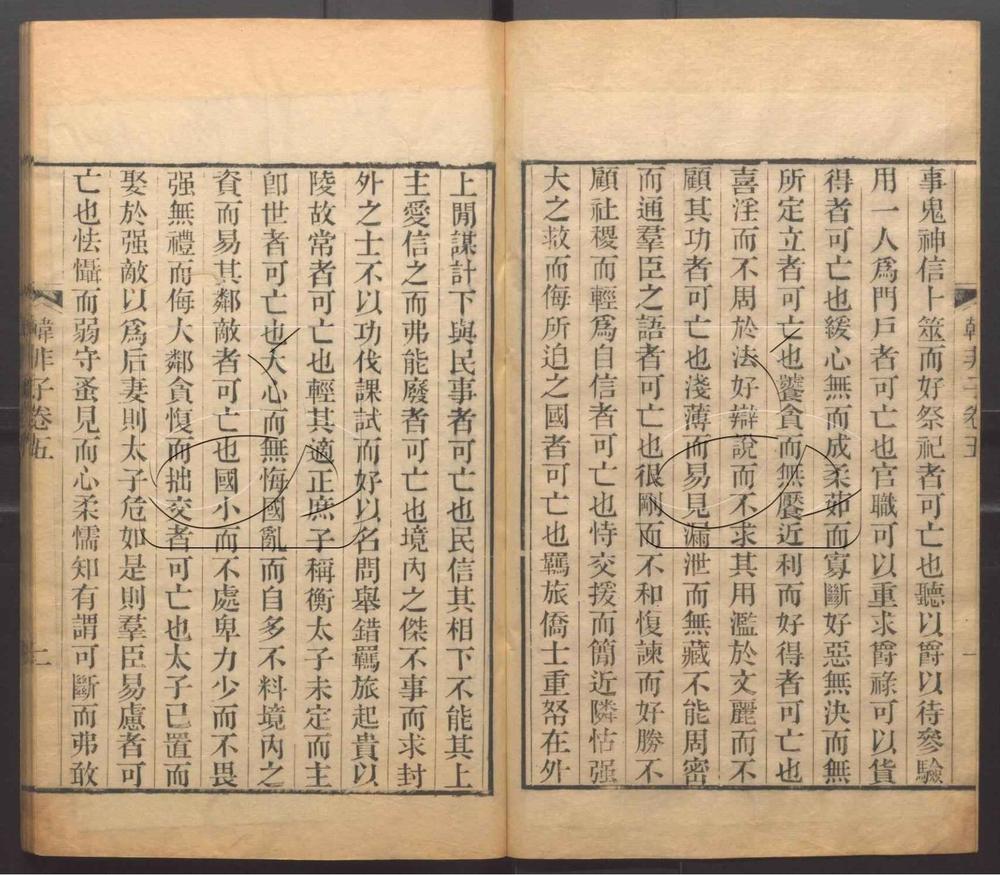 事鬼神信卜筮而好祭祀者可亡也聽以爵以待參驗
用一人爲門戸者可亡也官職可以重求爵祿可以貨
得者可亡也緩心無而成柔茹而寡斷好惡無決而無
所定立者可亡也饕貪而無饜近利而好得者可亡也
喜淫而不周於法好辯說而不求其用濫於文麗而不
顧其功者可亡也淺薄而易見漏泄而無藏不能周密
而通羣臣之語者可亡也很剛而不和愎諫而好勝不
顧社稷而輕爲自信者可亡也恃交援而簡近隣怙强
大之救而侮所迫之國者可亡也羈旅僑士重帑在外
上閒謀計下與民事者可亡也民信其相下不能其上
主愛信之而弗能廢者可亡也境內之傑不事而求封
外之士不以功伐課試而好以名問舉錯羈旅起貴以
陵故常者可亡也輕其適正庶子稱衡太子未定而主
卽世者可亡也大心而無悔國亂而自多不料境內之
資而易其鄰敵者可亡也國小而不處卑力少而不畏
强無禮而侮大鄰貪愎而拙交者可亡也太子已置而
娶於强敵以爲后妻則太子危如是則羣臣易慮者可
亡也怯懾而弱守蚤見而心柔懦知有謂可斷而弗敢
韓非子卷五
二